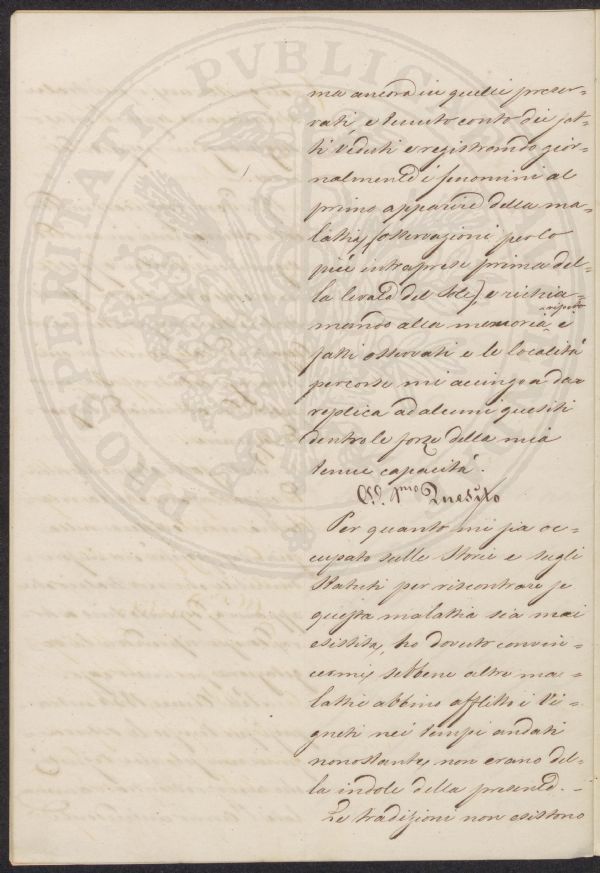 PROSPERITATI PVBLICAE
ma ancora in quelli preser-
vati, e tenuto conto dei fat-
ti veduti e registrando gior-
nalmente i fenomini al
primo apparire della ma-
lattia, (osservazioni per lo
più intraprese prima del-
la levata del Sole), e richia-
mando alla memoria
fatti osservati e le località
percorse mi accingo a dar
replica ad alcuni quesiti
dentro le forze della mia
tenue capacità.
1mo Quesito
Per quanto mi sia oc-
cupato sulle Storie e sugli
Statuti per riscontrare se
questa malattia sia mai
esistita, ho dovuto convin-
cermi, sebbene altre ma-
lattie abbino afflitto i Vi-
gneti nei tempi andati
nonostante, non erano del-
la indole della presente. -
Le tradizioni non esistono